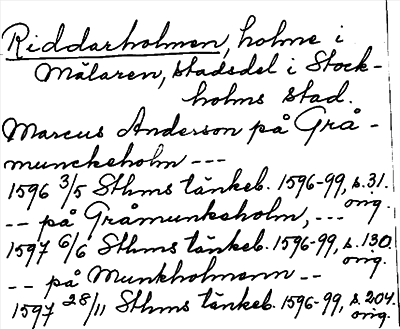 Riddarholmen, holme i
Mälaren, stadsdel i Stock-
holms stad.
Marcus Anderson på Grå-
munckeholm ---
1596 3/5 Sthms tänkeb. 1596-99, s.31.
orig.
-- på Gråmunksholm, ---
1597 6/6 Sthms tänkeb. 1596-99, s.130.
orig.
-- på Munkholmenn --
1597 28/11 Sthms tänkeb. 1596-99, s.204.
orig.